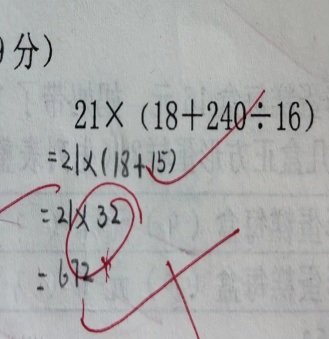 分)
21×（18+240÷16）
=21×(18+15)
=21×32
=672